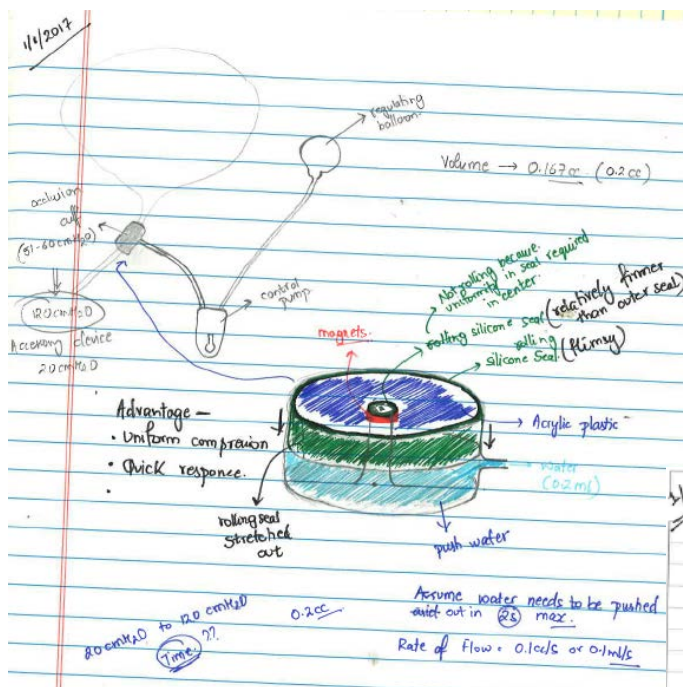 1/1/2017
regulating
balloon.
Volume → 0.167cc. (0.2cc)
occlusion
cuff
(51-60cmH2O)
120cmH2O
Accessing device
20cmH2O
control
pump
Not rolling because
uniformity in seal required
in center.
rolling silicone seal (relatively firmer
than outer seal)
rolling
silicone seal (flimsy)
magnets.
Advantage -
• Uniform compression
• Quick response.
•
Acrylic plastic
water
(0.2ml)
rolling seal
stretched
out
push water
20cmH2O to 120cmH2O 0.2cc
Time ??
Assume water needs to be pushed
out in 2s max.
Rate of Flow = 0.1cc/s or 0.1ml/s